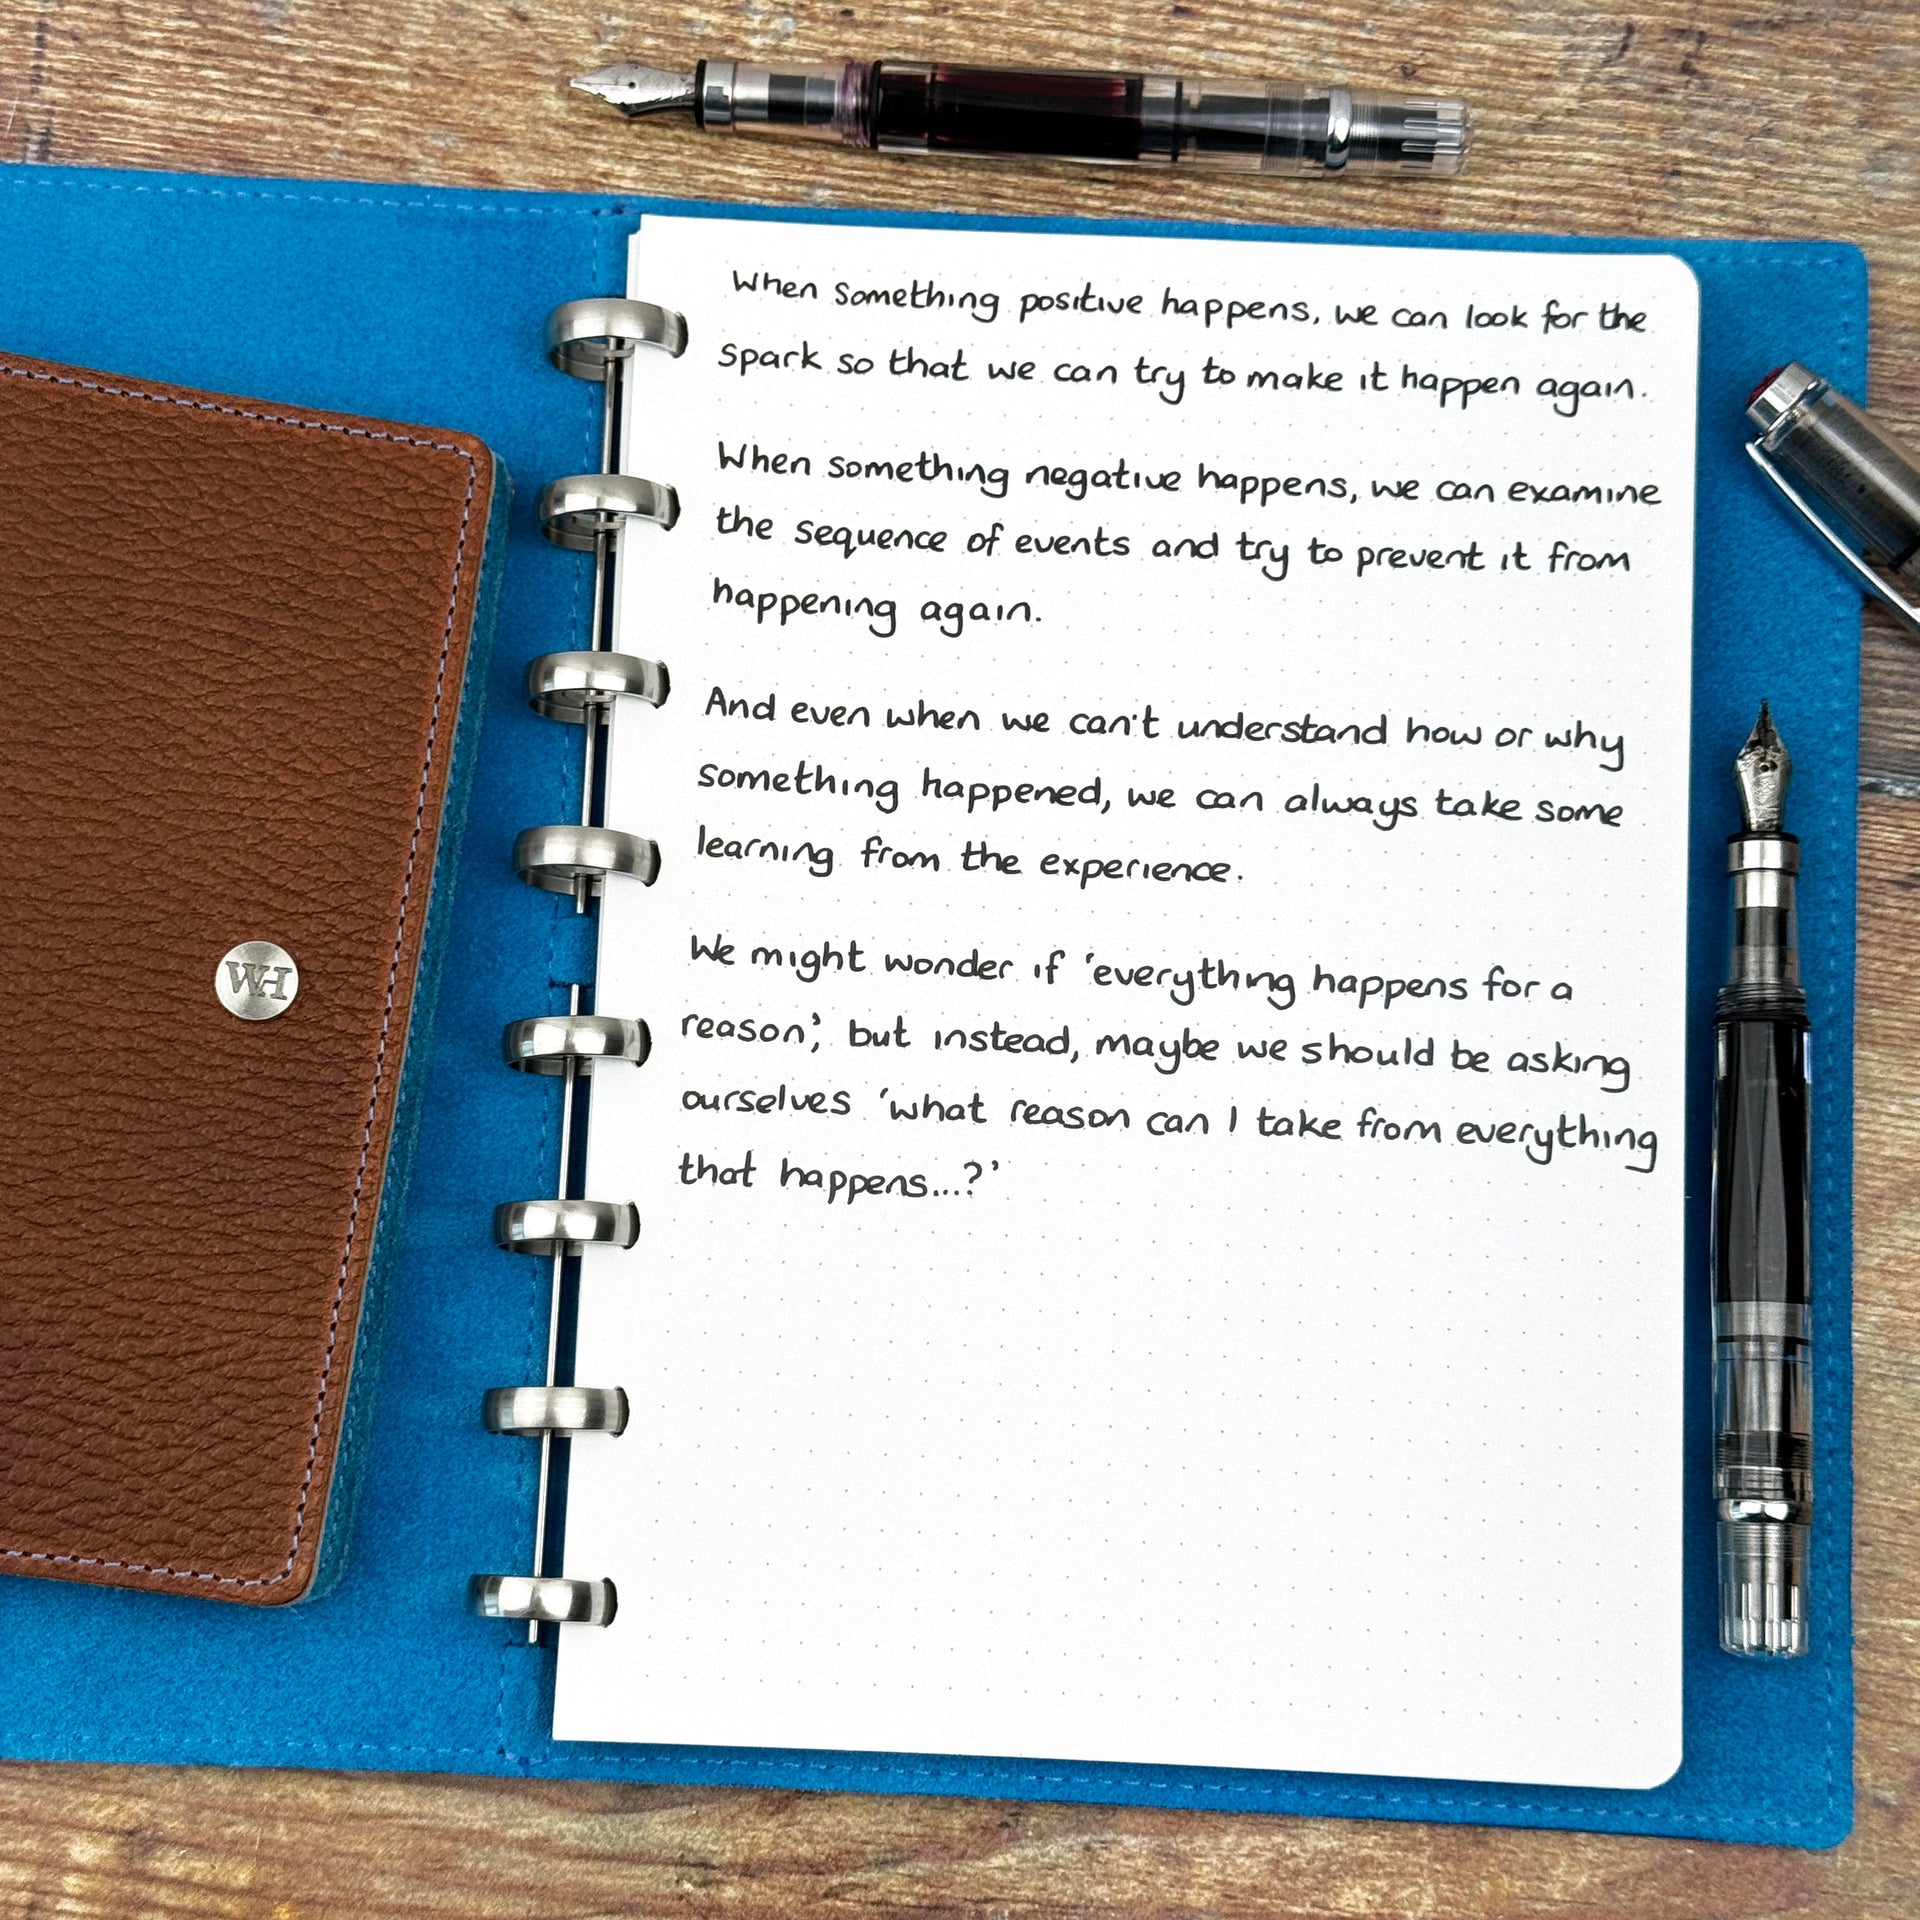 When something positive happens, we can look for the
spark so that we can try to make it happen again.
When something negative happens, we can examine
the sequence of events and try to prevent it from
happening again.
And even when we can't understand how or why
something happened, we can always take some
learning from the experience.
We might wonder if 'everything happens for a
reason', but instead, maybe we should be asking
ourselves 'what reason can I take from everything
that happens...?'
WH